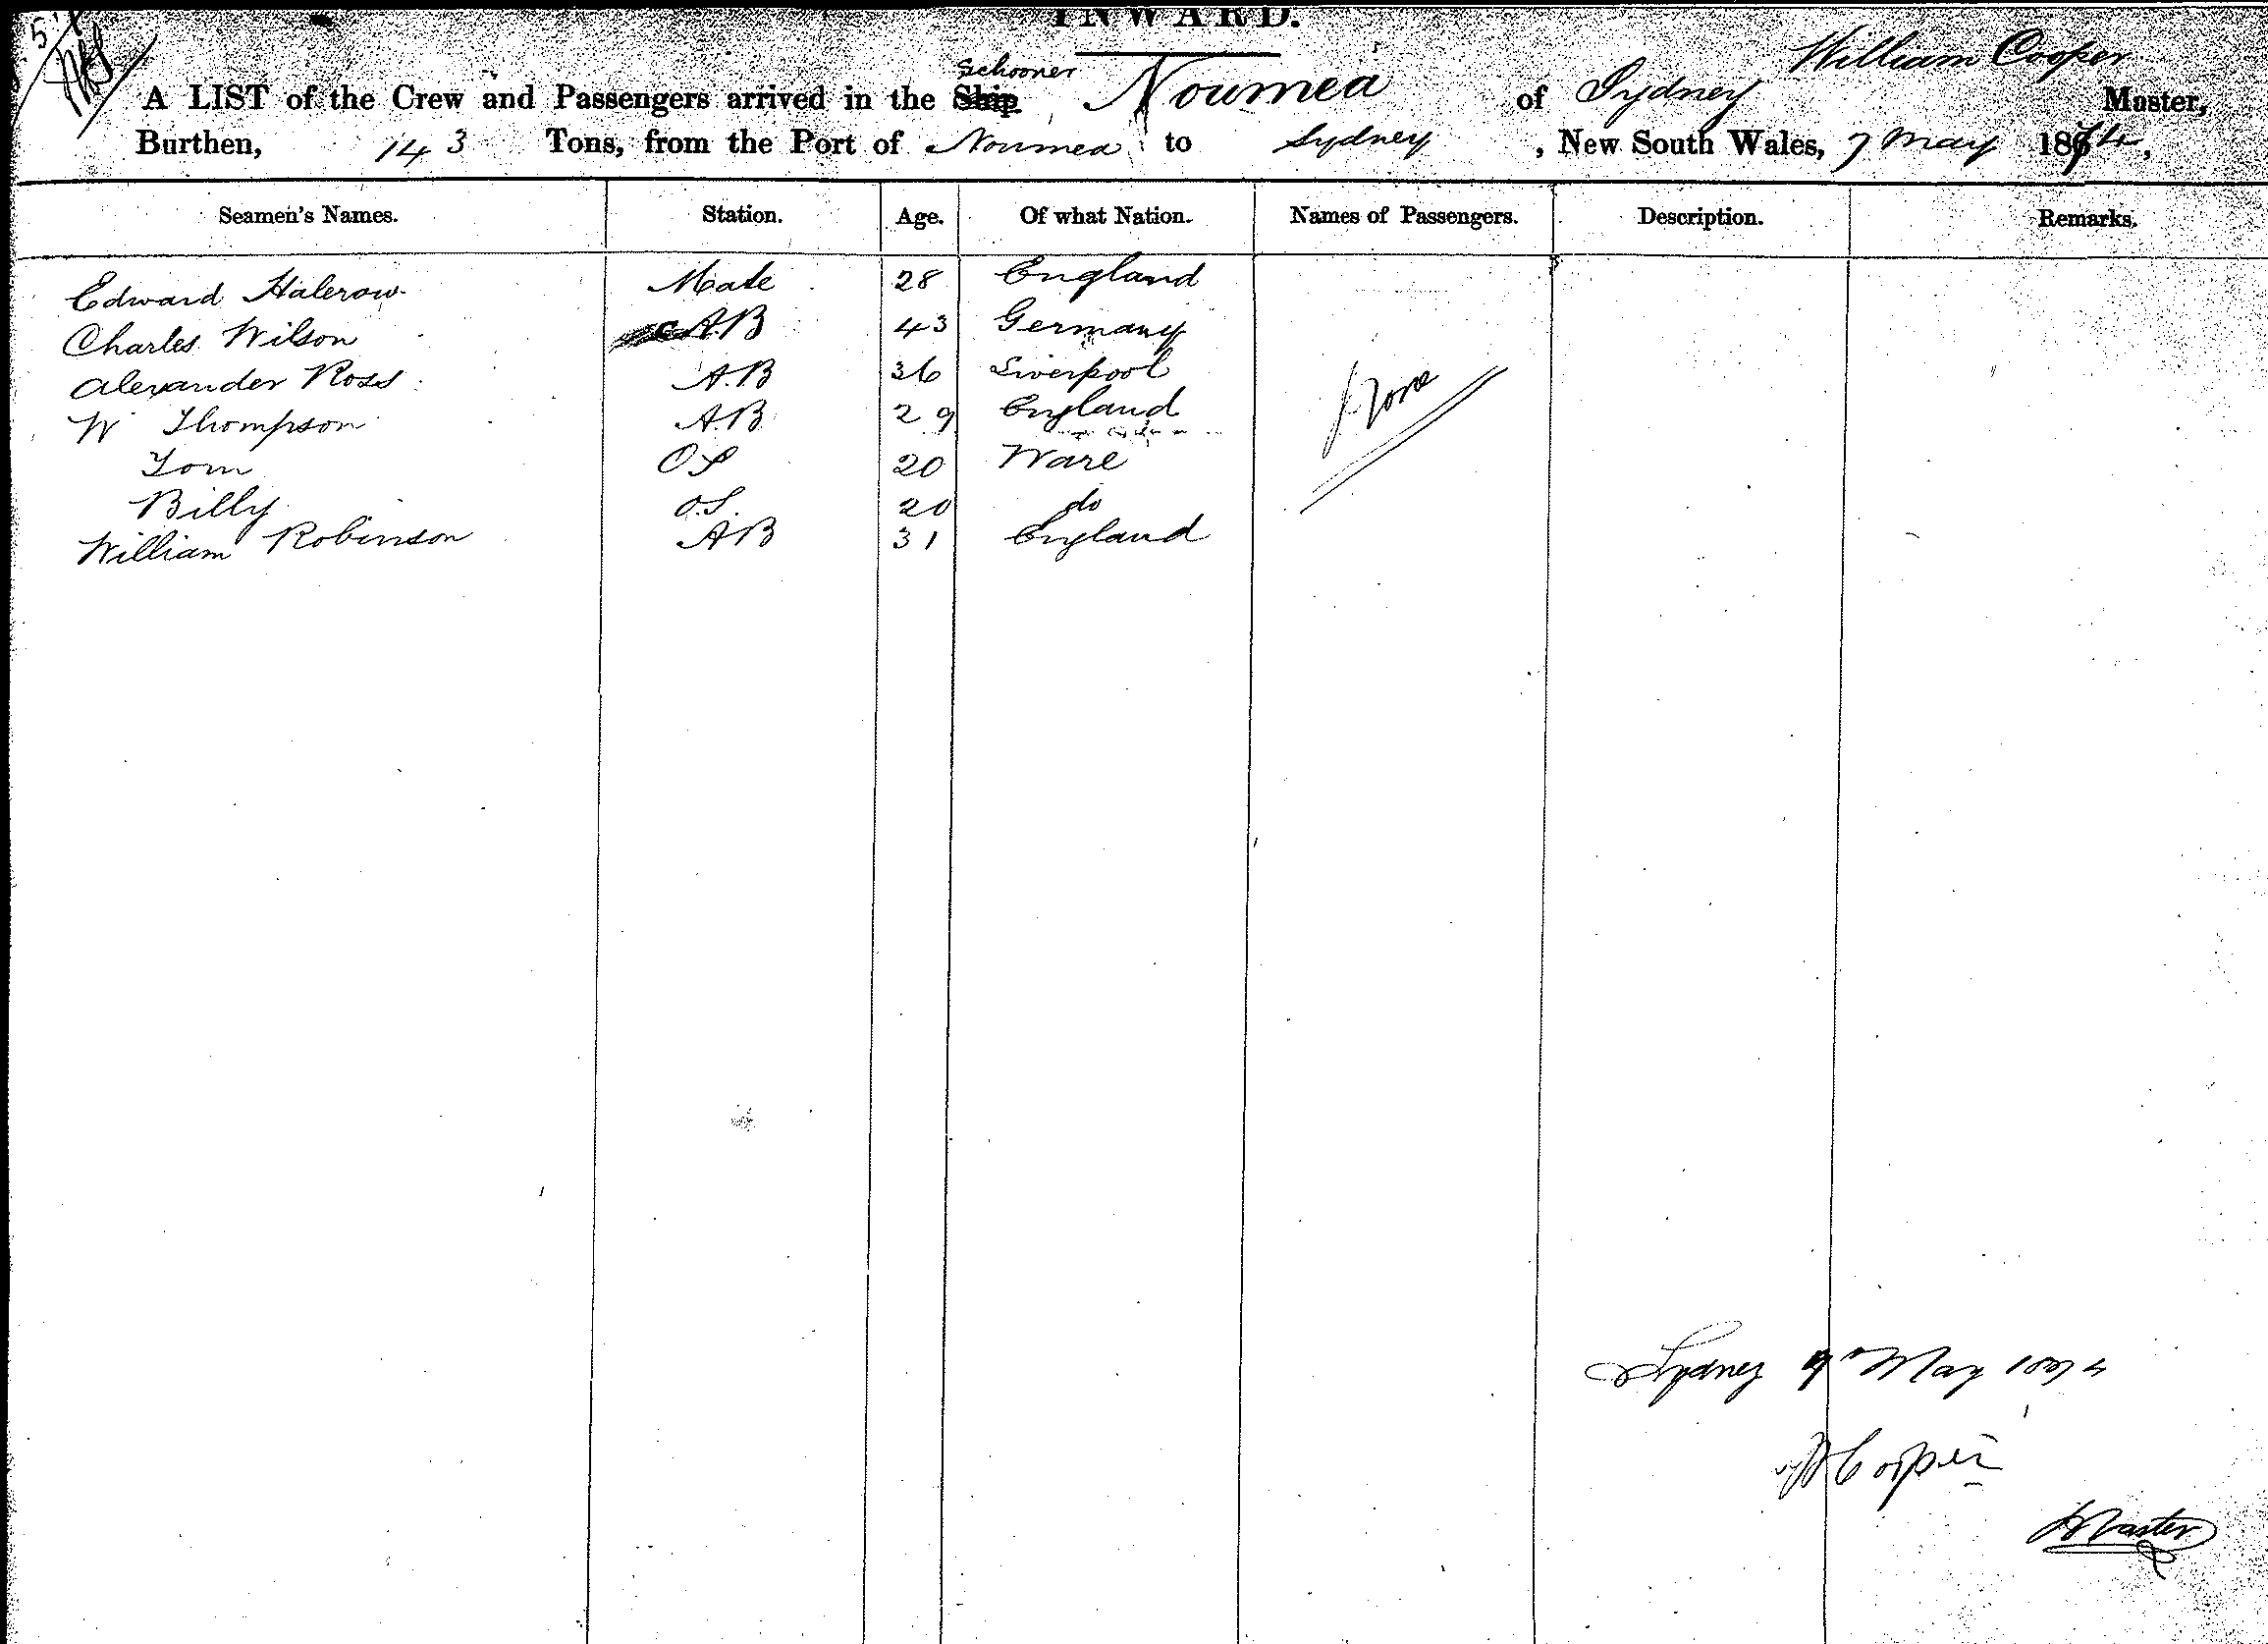 INWARD.
William Cooper
schooner
A LIST of the Crew and Passengers arrived in the Ship Noumea of Sydney Master,
Burthen, 143 Tons, from the Port of Noumea to Sydney, New South Wales, 7 May 1874,
Seamen's Names. Station. Age. Of what Nation. Names of Passengers. Description. Remarks.
Edward Halcrow Mate 28 England
Charles Wilson A.B 43 Germany
Alexander Ross A.B 36 Liverpool
None
W Thompson A.B 29 England
Tom OS 20 Ware
Billy O.S. 20 do
William Robinson AB 31 England
Sydney May 1874
W Cooper
Master